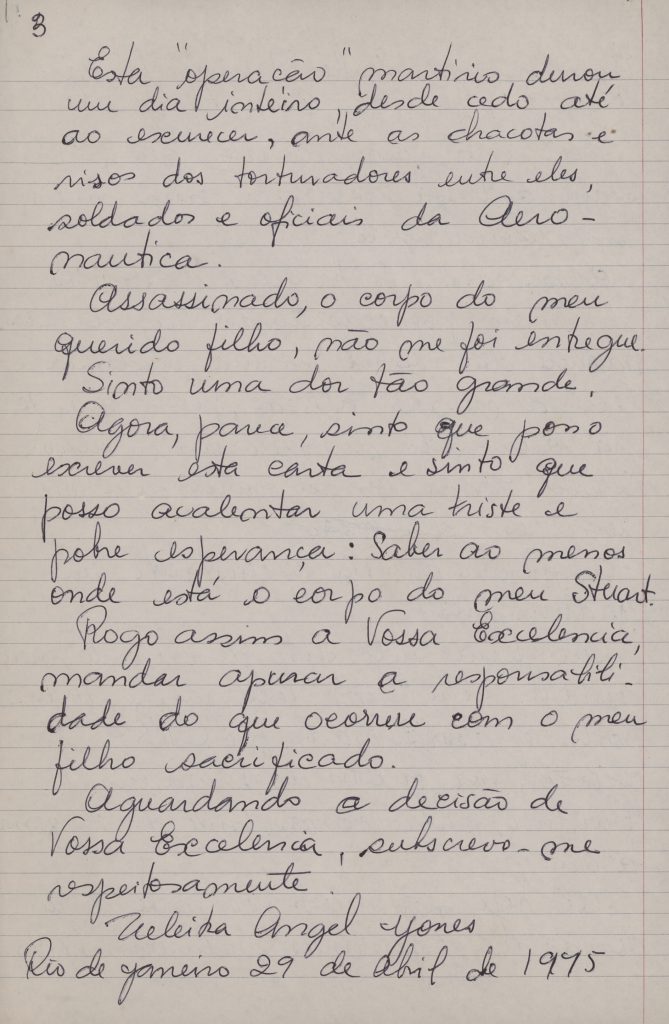 3
Esta "operação" martírio, durou
um dia inteiro, desde cedo até
ao escurecer, ante as chacotas e
risos dos torturadores entre eles,
soldados e oficiais da Aero-
nautica.
Assassinado, o corpo do meu
querido filho, não me foi entregue.
Sinto uma dor tão grande.
Agora, parece, sinto que posso
escrever esta carta e sinto que
posso acalentar uma triste e
pobre esperança: Saber ao menos
onde está o corpo do meu Stuart.
Rogo assim a Vossa Excelencia,
mandar apurar a responsabili-
dade do que ocorreu com o meu
filho sacrificado.
Aguardando a decisão de
Vossa Excelencia, subscrevo-me
respeitosamente.
Zuleika Angel Jones
Rio de janeiro 29 de Abril de 1975